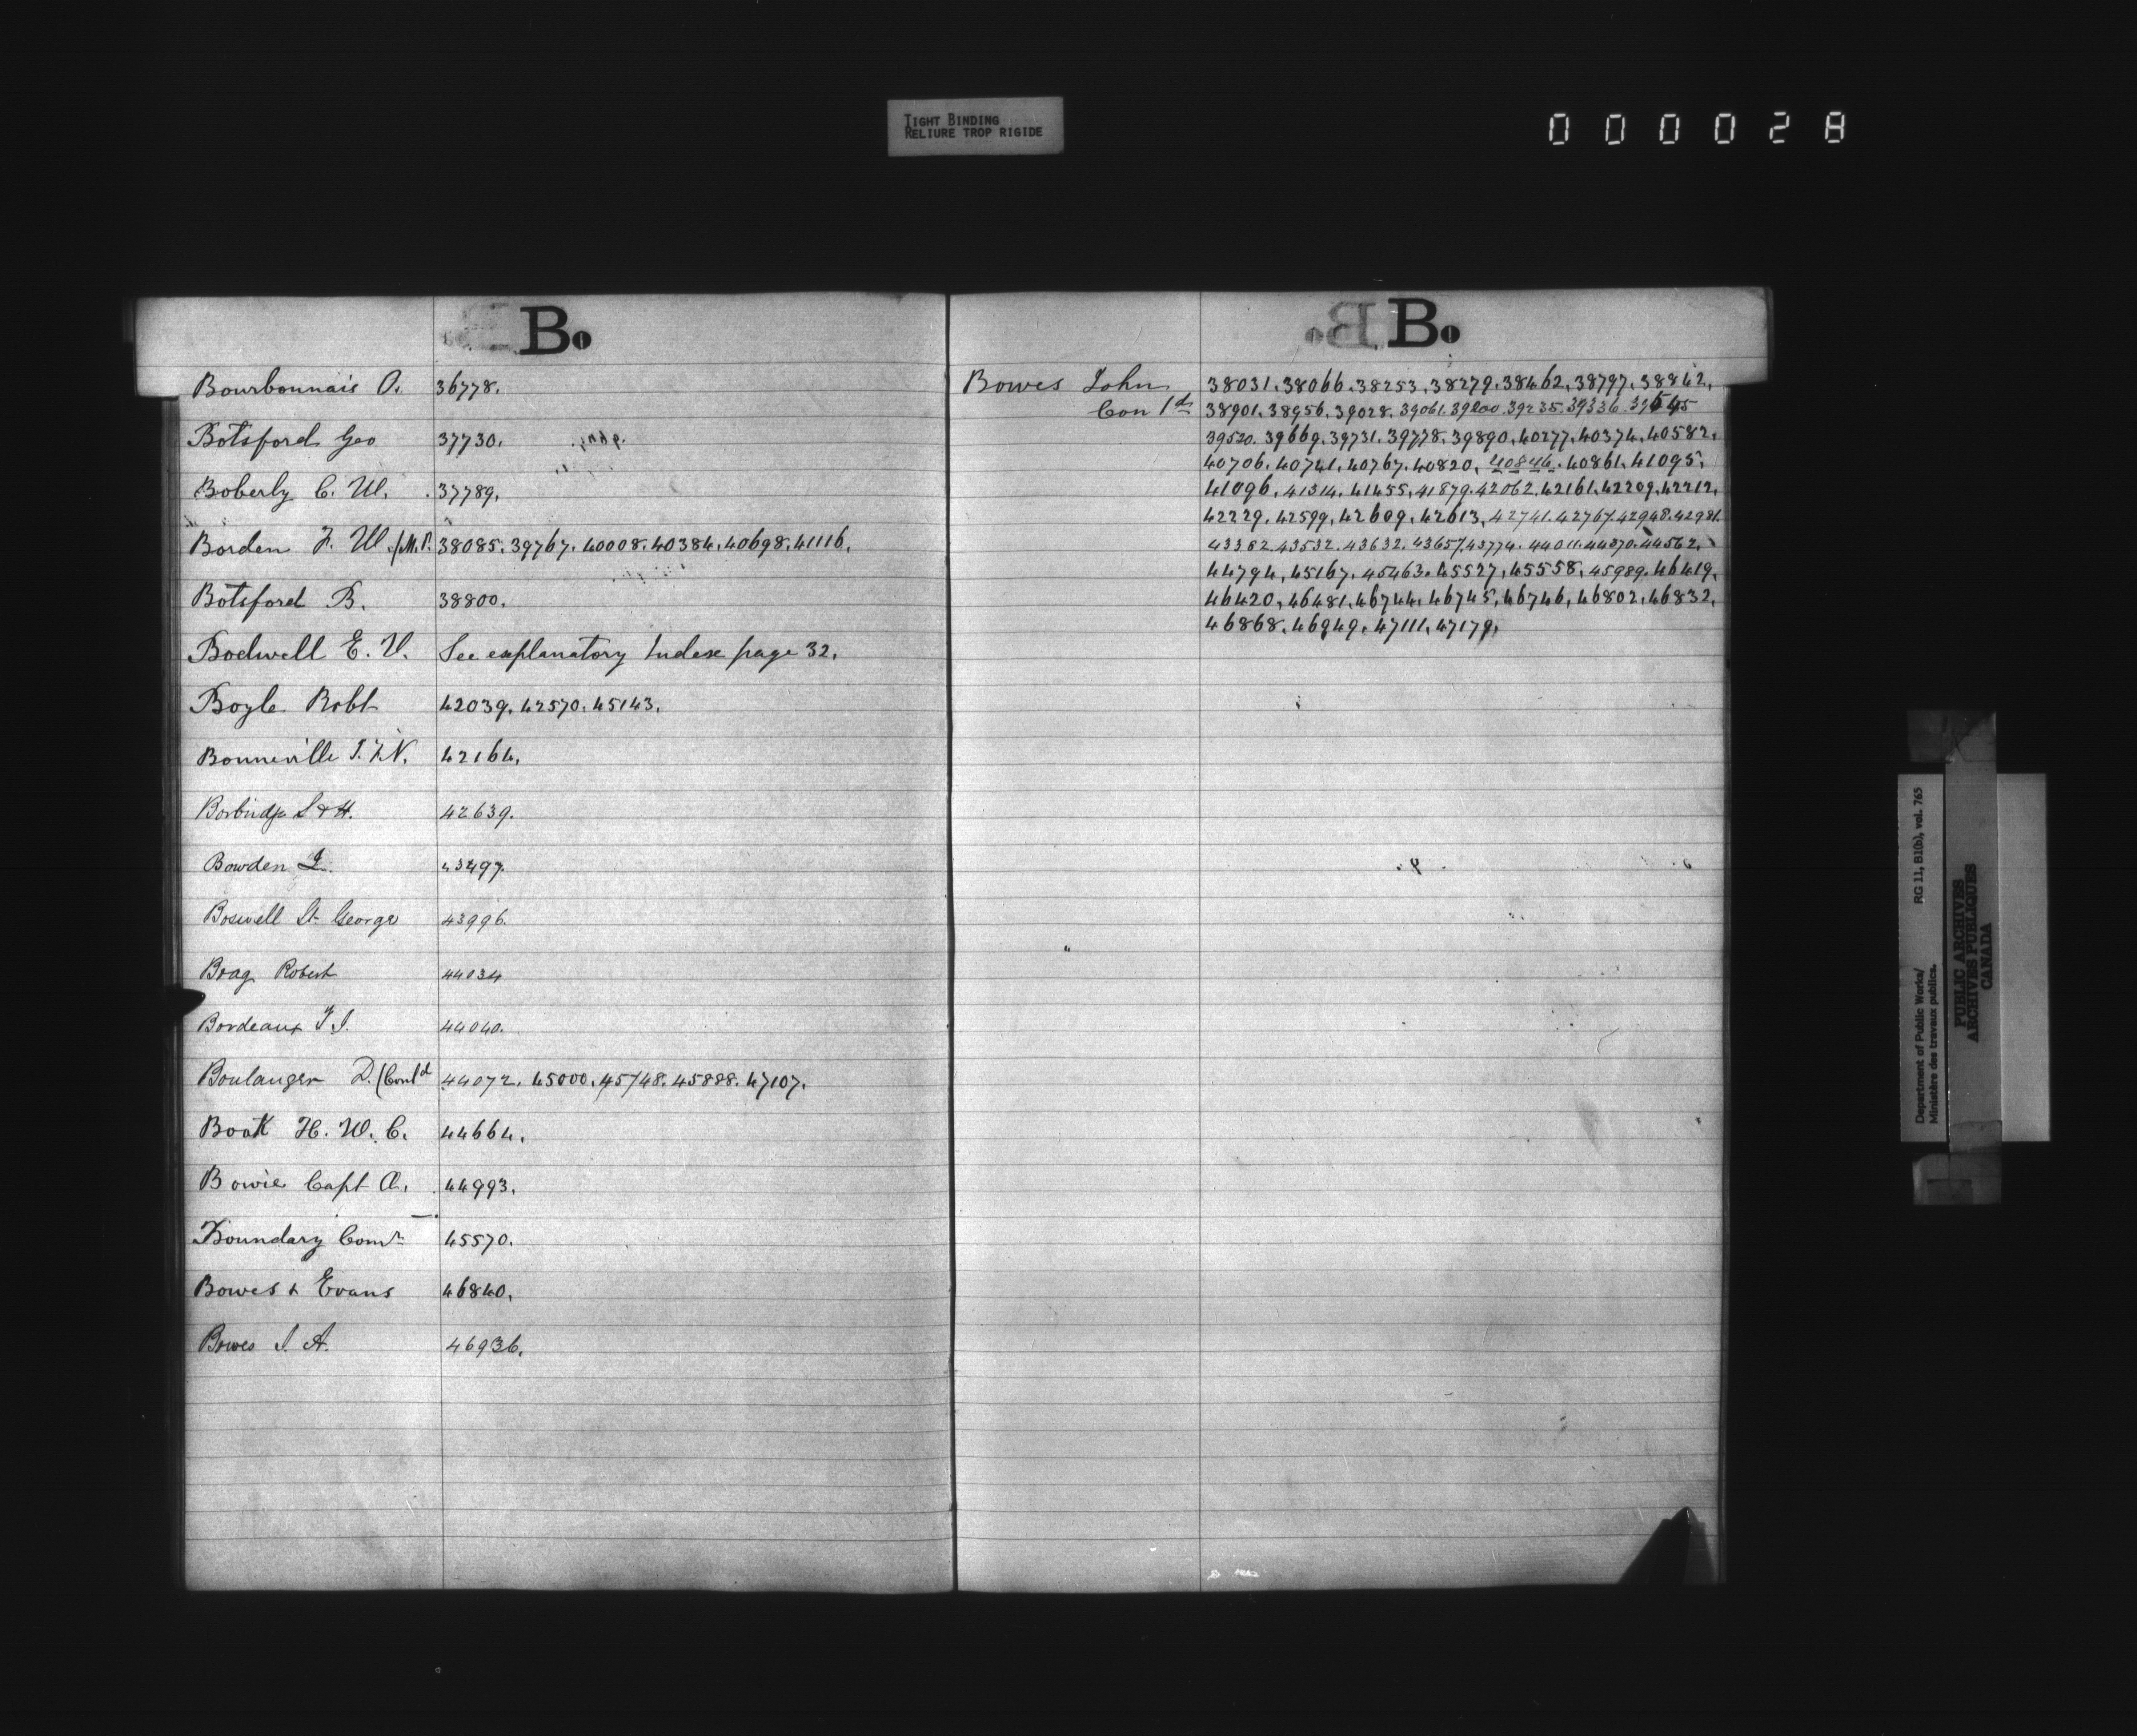 TIGHT BINDING
RELIURE TROP RIGIDE
000028
Bo
Bourbonnais O. 36778.
Botsford Geo 37730.
Boberly C. W. 37789.
Borden F. W. (M.P. 38085. 39767. 40008. 40384. 40698. 41116.
Botsford B. 38800.
Bodwell E. V. See explanatory Index page 32.
Boyle Robt 42039. 42570. 45143.
Bonneville J. F. N. 42164.
Borbridge S & H. 42639.
Bowden J. 43497.
Boswell St. George 43996.
Boag Robert 44034
Bordeaux T J. 44040.
Boulanger D. (Contd 44072. 45000. 45748. 45888. 47107.
Boak H. W. C. 44664.
Bowie Capt A. 44993.
Boundary Comrs 45570.
Bowes & Evans 46840.
Bowes J. A. 46936.
Bo
Bowes John 38031. 38066. 38253. 38279. 38462. 38797. 38842.
Con td 38901. 38956. 39028. 39061. 39200. 39235. 39336.
39520. 39669. 39731. 39778. 39890. 40277. 40374. 40582.
40706. 40741. 40767. 40820. 40846. 40861. 41095.
41096. 41314. 41455. 41879. 42062. 42161. 42209. 42212.
42229. 42599. 42609. 42613. 42741. 42767. 42948. 42981.
43382. 43532. 43632. 43657. 43774. 44011. 44370. 44562.
44794. 45167. 45463. 45527. 45558. 45989. 46419.
46420. 46481. 46744. 46745. 46746. 46802. 46832.
46868. 46949. 47111. 47179.
Department of Public Works/ RG 11, B1(b), vol. 765
Ministère des travaux publics.
PUBLIC ARCHIVES
ARCHIVES PUBLIQUES
CANADA